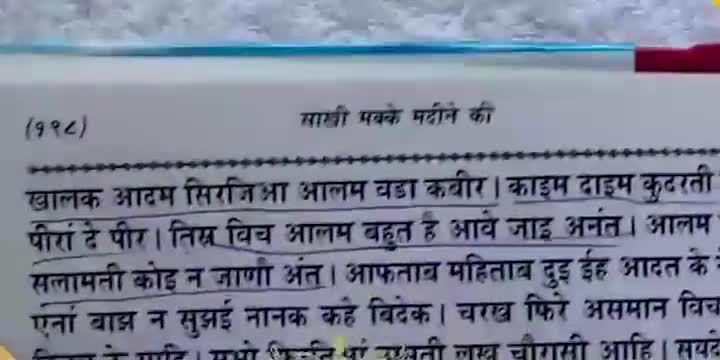 (११८)
साखी मक्के मदीने की
खालक आदम सिरजिआ आलम वडा कबीर । काइम दाइम कुदरती
पीरां दे पीर । तिस विच आलम बहुत है आवे जाइ अनंत । आलम
सलामती कोइ न जाणी अंत । आफताब महिताब दुइ ईह आदत के
ऐनां बाझ न सुझई नानक कहे बिदेक । चरख फिरे असमान विच
लख चौरासी आदि ।